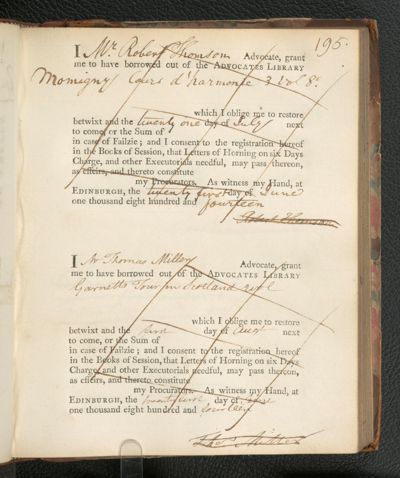 195.
I Mr. Robert Thomson Advocate, grant
me to have borrowed out of the ADVOCATES LIBRARY
Momigny Cours d'harmonie 3 vol 8o.
which I oblige me to restore
betwixt and the twenty one day of July next
to come, or the Sum of
in case of Failzie; and I consent to the registration hereof
in the Books of Session, that Letters of Horning on six Days
Charge, and other Executorials needful, may pass thereon,
as effeirs, and thereto constitute
my Procurators. As witness my Hand, at
EDINBURGH, the twenty first day of June
one thousand eight hundred and fourteen
Robert Thomson
I Mr Thomas Miller Advocate, grant
me to have borrowed out of the ADVOCATES LIBRARY
Garnetts Tour in Scotland 2 vol
which I oblige me to restore
betwixt and the first day of Augt next
to come, or the Sum of
in case of Failzie; and I consent to the registration hereof
in the Books of Session, that Letters of Horning on six Days
Charge, and other Executorials needful, may pass thereon,
as effeirs, and thereto constitute
my Procurators. As witness my Hand, at
EDINBURGH, the twenty first day of June
one thousand eight hundred and fourteen
Thos. Miller